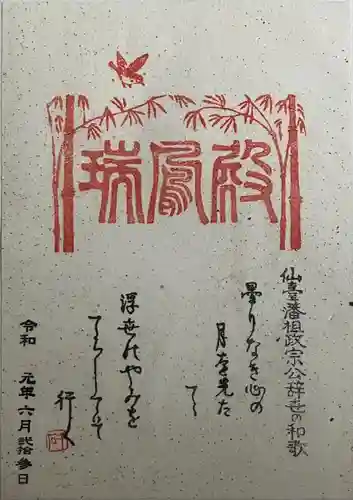 瑞鳳殿
仙臺藩祖政宗公辞世の和歌
曇りなき心の
月を先た
てて
浮世のやみを
てらしてそ
行く
令和 元年 六月 弐拾参日